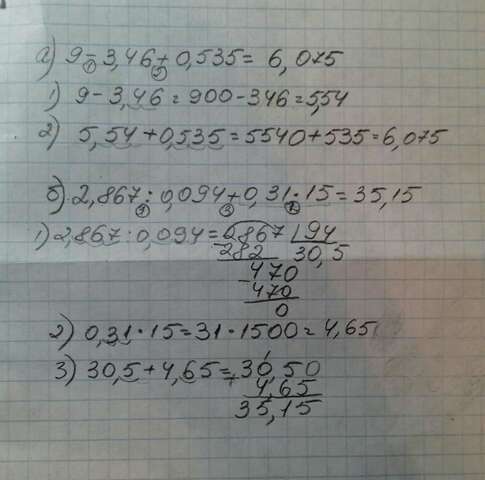 а) 9-3,46+0,535= 6,075
① ②
1) 9-3,46=900-346=5,54
2) 5,54+0,535=5540+535=6,075
б) 2,867:0,094+0,31·15=35,15
① ③ ②
1) 2,867:0,094=2867|94
-282 30,5
-470
470
0
2) 0,31·15=31·1500=4,65
3) 30,5+4,65=30,50
+4,65
35,15